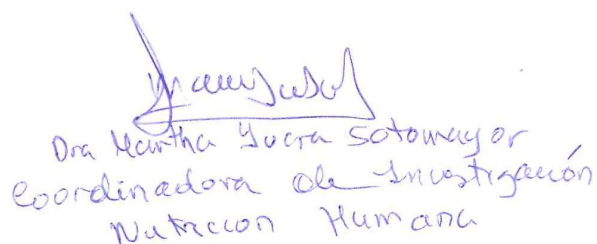 Dra Martha Yucra Sotomayor
Coordinadora de Investigación
Nutricion Humana